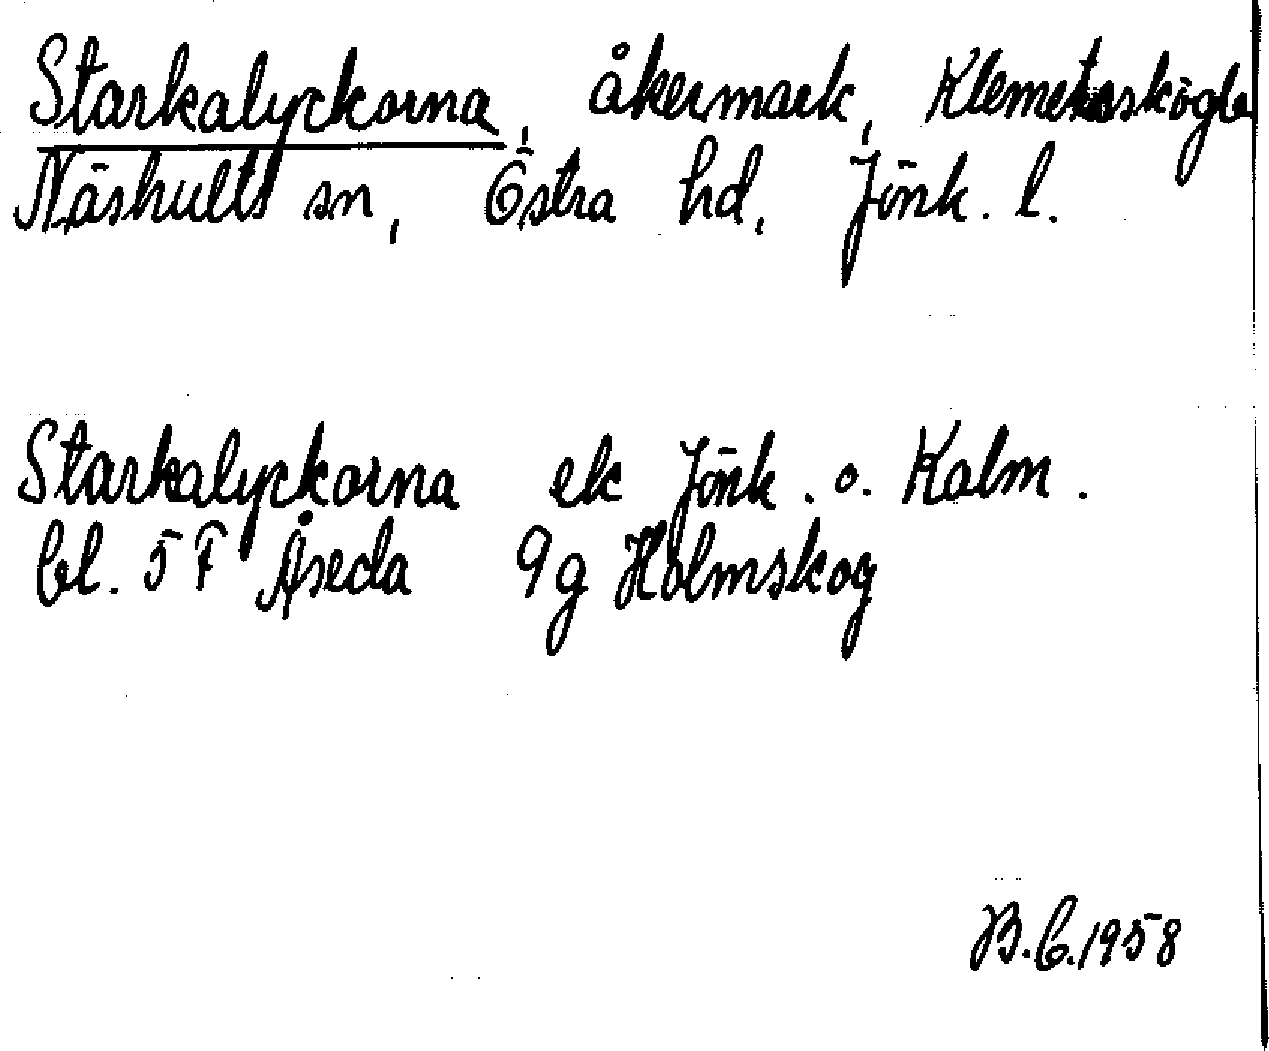 Starkalyckorna, åkermark, Klemetsskögle
Näshults sn, Östra hd, Jönk. l.
Starkalyckorna ek Jönk. o. Kalm.
bl. 5 F Åseda 9g Holmskog
B.C. 1958